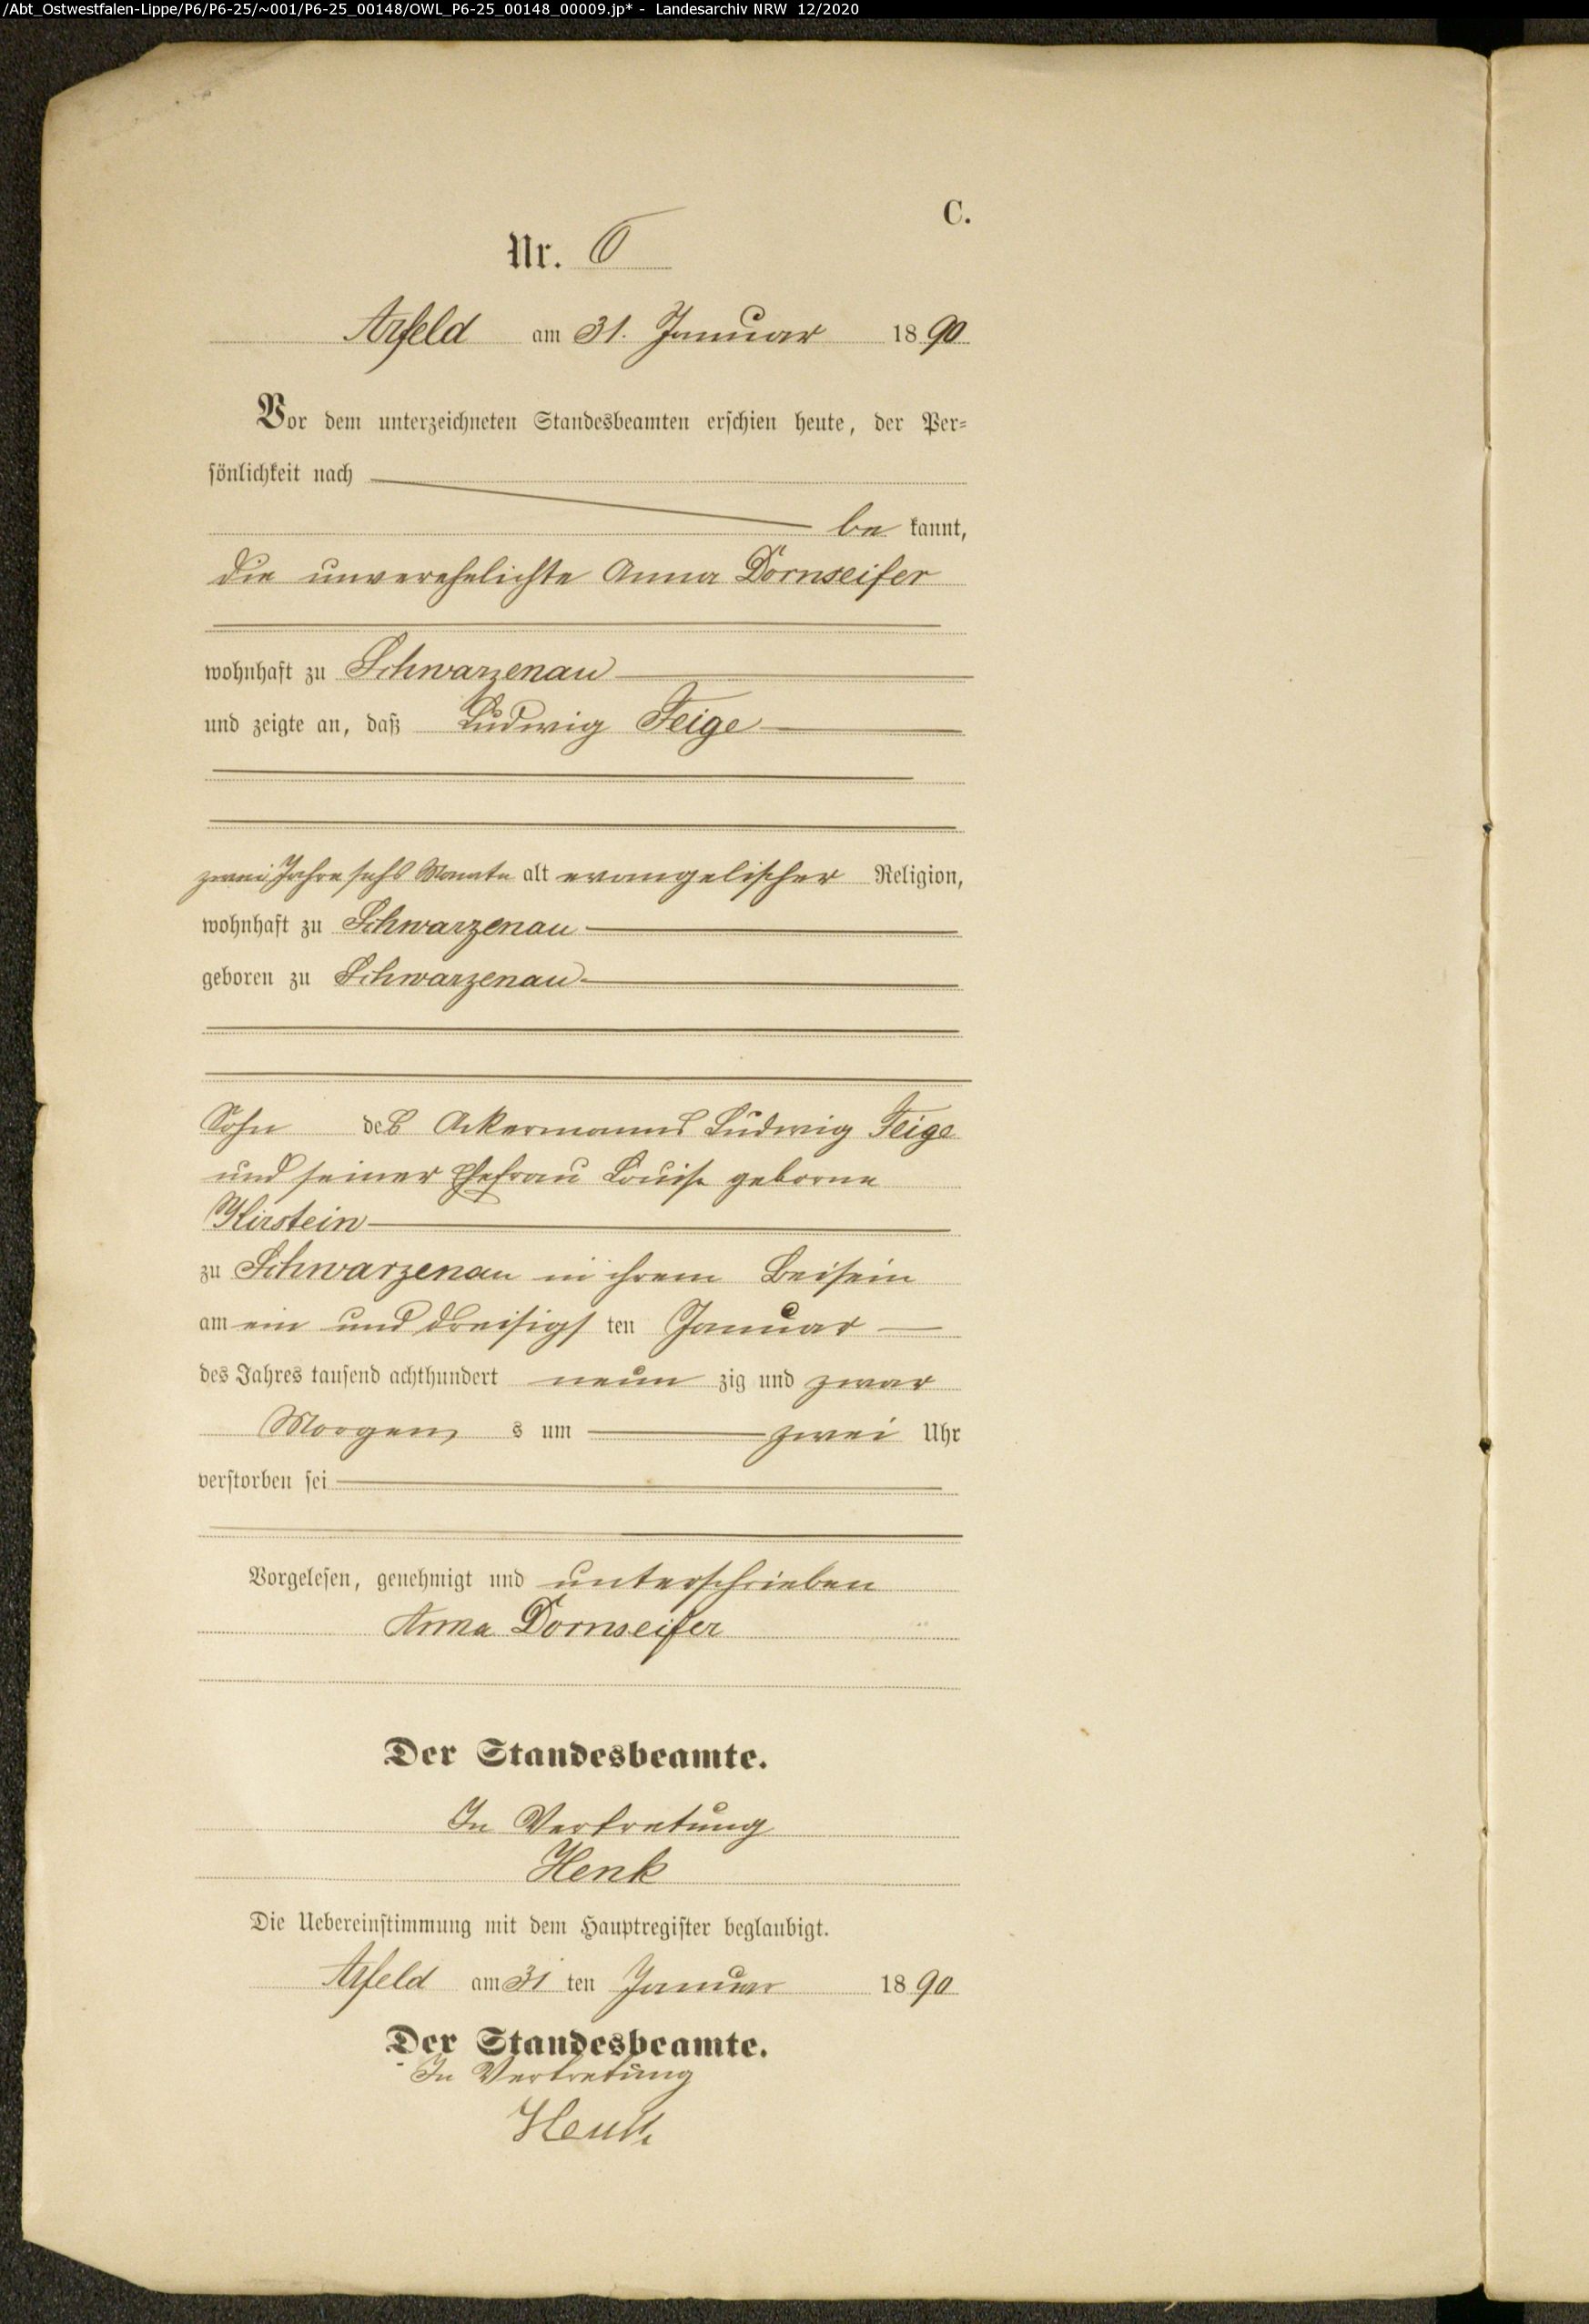 /Abt_Ostwestfalen-Lippe/P6/P6-25/~001/P6-25_00148/OWL_P6-25_00148_00009.jp* - Landesarchiv NRW 12/2020
C.
Nr. 6
Arfeld am 31. Januar 1890
Vor dem unterzeichneten Standesbeamten erschien heute, der Per-
sönlichkeit nach
be kannt,
die unverehelichte Anna Dornseifer
wohnhaft zu Schwarzenau
und zeigte an, daß Ludwig Feige
zwei Jahre sechs Monate alt evangelischer Religion,
wohnhaft zu Schwarzenau
geboren zu Schwarzenau
Sohn des Ackermanns Ludwig Feige
und seiner Ehefrau Louise geborne
Kirstein
zu Schwarzenau in ihrem Beisein
am ein und dreisigs ten Januar
des Jahres tausend achthundert neun zig und zwar
Morgen s um zwei Uhr
verstorben sei
Vorgelesen, genehmigt und unterschrieben
Anna Dornseifer
Der Standesbeamte.
In Vertretung
Henk
Die Uebereinstimmung mit dem Hauptregister beglaubigt.
Arfeld am 31 ten Januar 1890
Der Standesbeamte.
In Vertretung
Henk